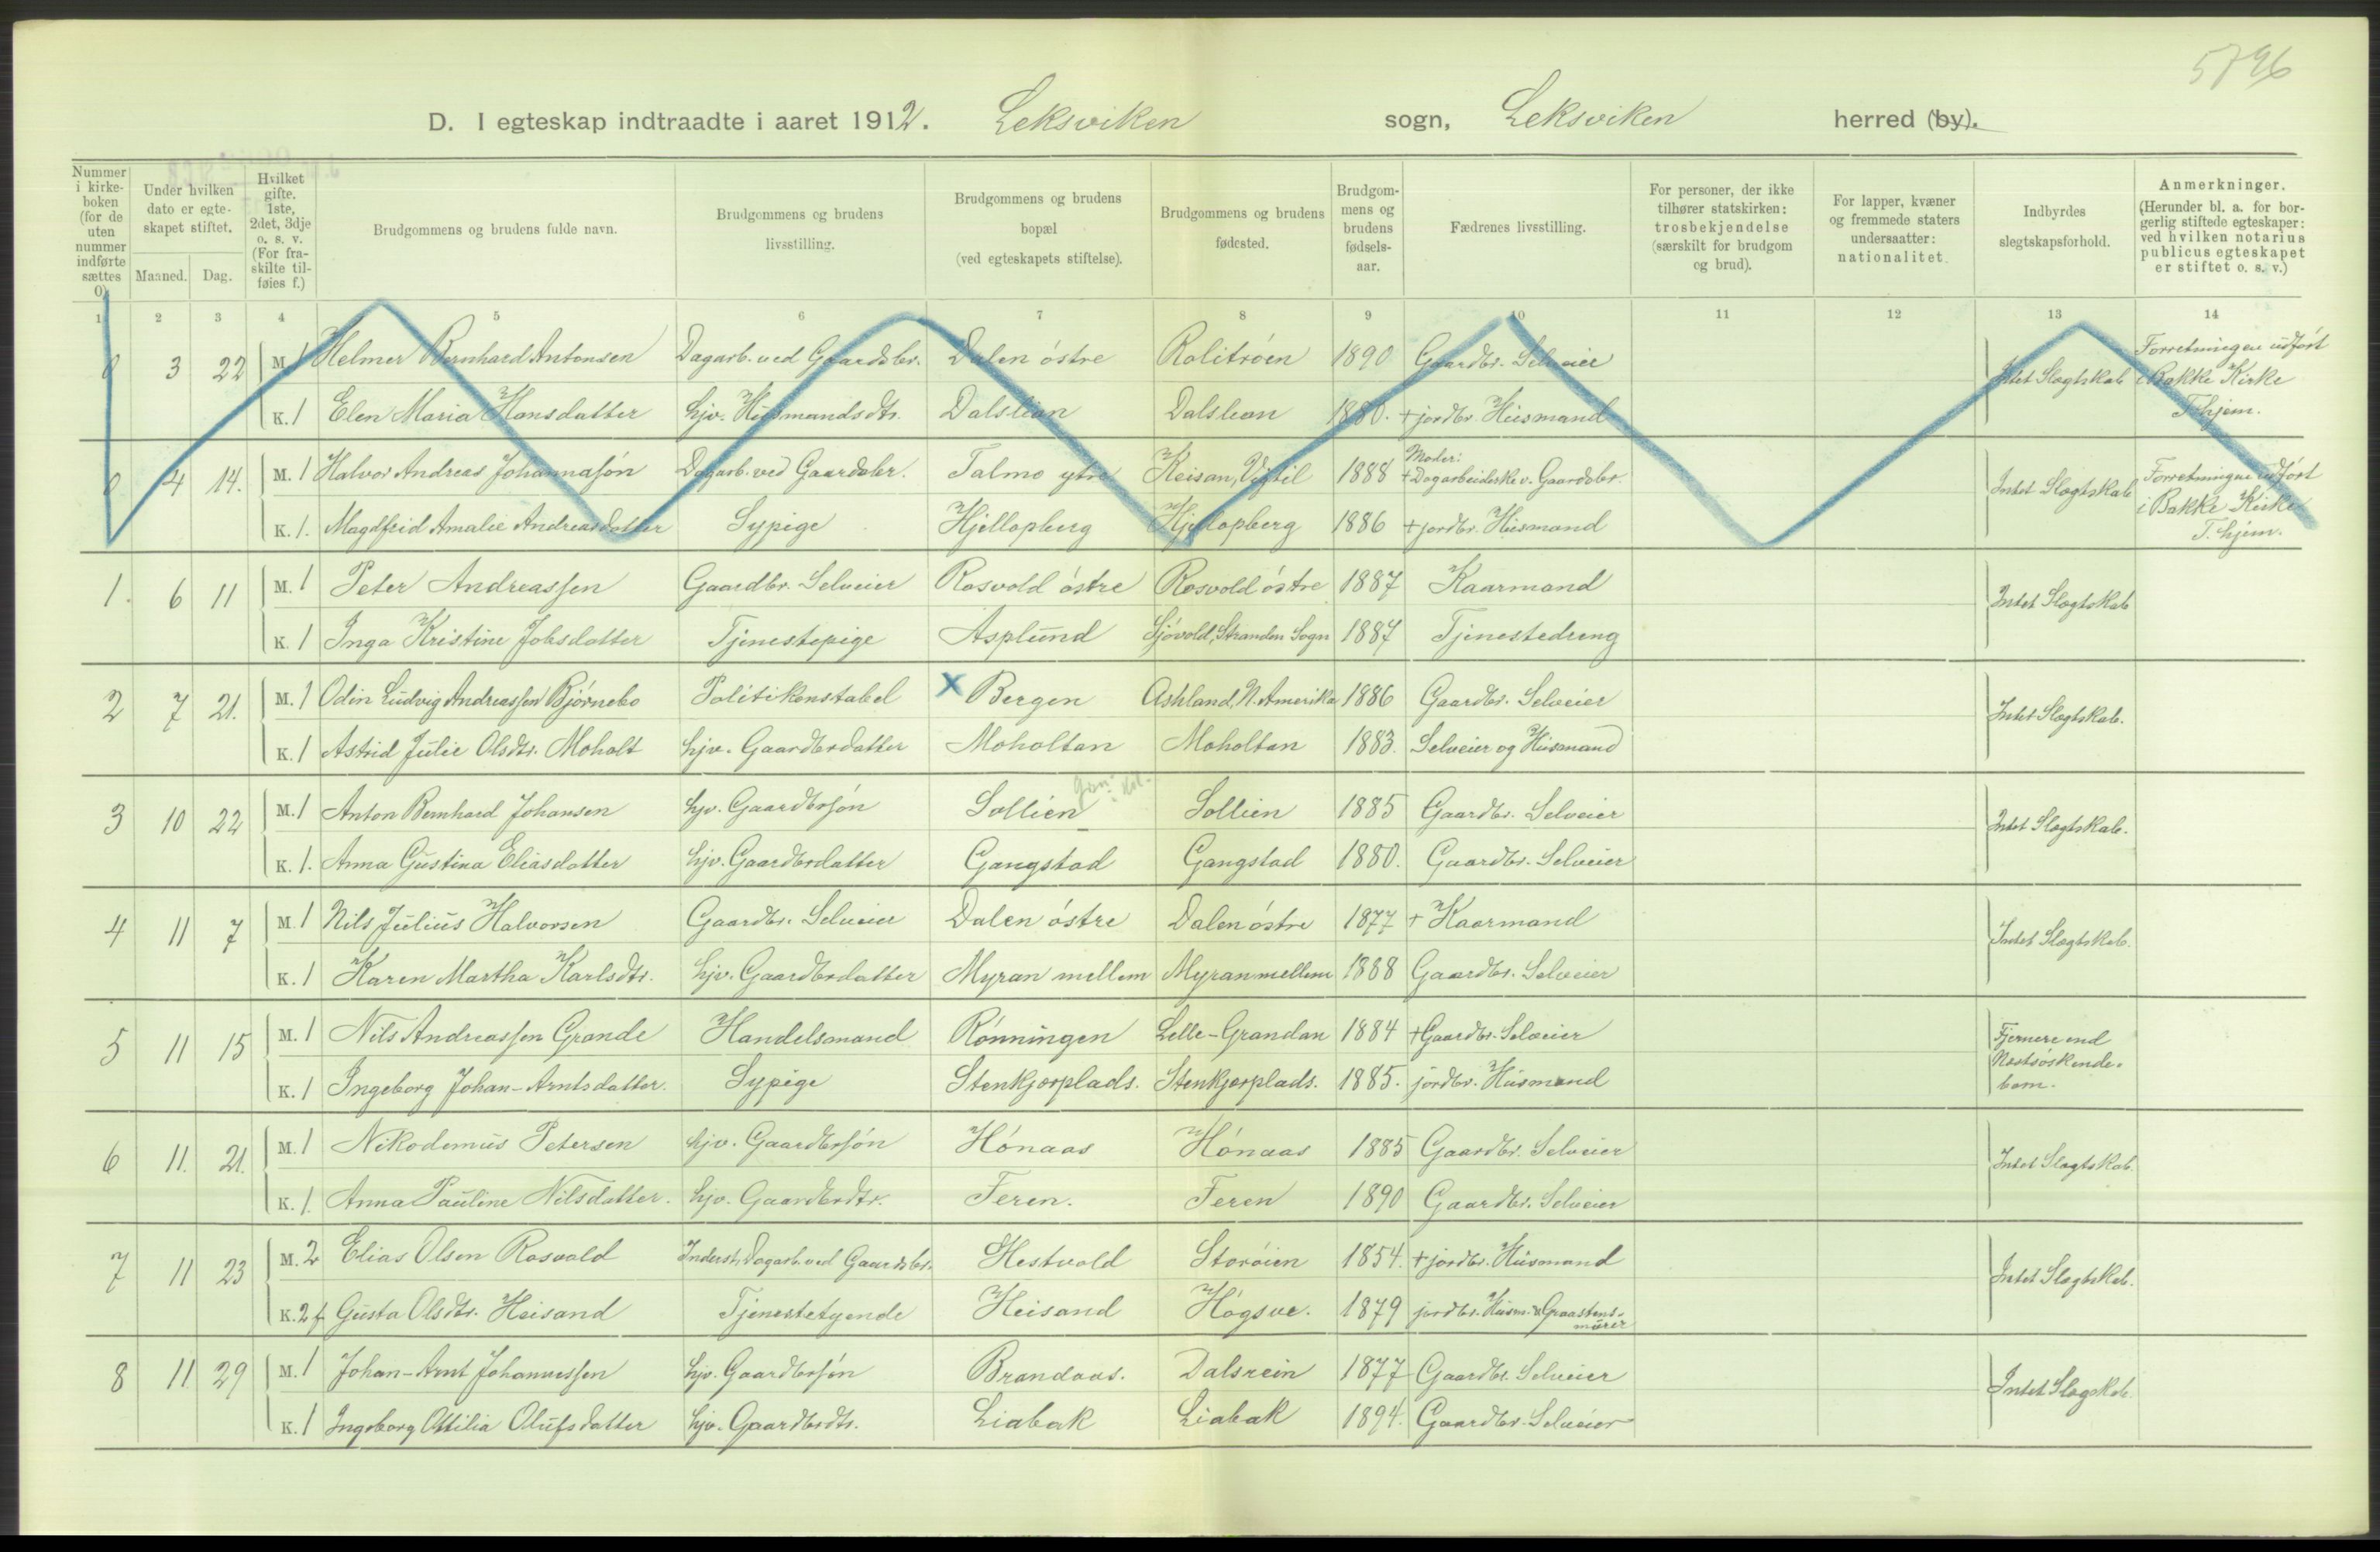 5796
D. I egteskap indtraadte i aaret 1912. Leksviken sogn, Leksviken herred (by).
Nummer i kirke-boken (for de uten nummer indførte sættes 0)
Under hvilken dato er egte-skapet stiftet.
Maaned. Dag.
Hvilket gifte, 1ste, 2det, 3dje o. s. v. (For fra-skilte til-føies f.)
Brudgommens og brudens fulde navn.
Brudgommens og brudens livsstilling.
Brudgommens og brudens bopæl (ved egteskapets stiftelse).
Brudgommens og brudens fødested.
Brudgom-mens og brudens fødsels-aar.
Fædrenes livsstilling.
For personer, der ikke tilhører statskirken: trosbekjendelse (særskilt for brudgom og brud).
For lapper, kvæner og fremmede staters undersaatter: nationalitet.
Indbyrdes slegtskapsforhold.
Anmerkninger. (Herunder bl. a. for bor-gerlig stiftede egteskaper: ved hvilken notarius publicus egteskapet er stiftet o. s. v.)
1 2 3 4 5 6 7 8 9 10 11 12 13 14
0 3 22 M. 1 Helmer Bernhard Antonsen Dagarb. ved Gaardsbr. Dalen östre Rolitröen 1890 Gaardbr. Selveier Intet Slægtskab Forretningen udfört i Bakke Kirke T.hjem.
K. 1 Elen Maria Hansdatter hjv. Husmandsdtr. Dalslian Dalslian 1880. + jordbr. Husmand
0 4 14. M. 1 Halvor Andreas Johannasön Dagarb. ved Gaardsbr. Talmo ytre Reisan, Vigtil 1888 Moder: + Dagarbeiderske v. Gaardsbr. Intet Slægtskab Forretningen udfört i Bakke Kirke T.hjem.
K. 1. Magdfrid Amalie Andreasdatter Sypige Hjellopberg Hjellopberg 1886 + jordbr. Husmand
1. 6 11 M. 1 Peter Andreassen Gaardbr. Selveier Rosvold östre Rosvold östre 1887 Kaarmand Intet Slægtskab
K. 1 Inga Kristine Johsdatter Tjenestepige Asplund Sjövold, Stranden Sogn 1887 Tjenestedreng
2 7 21. M. 1 Odin Ludvig Andreassen Bjørnebo Politikonstabel X Bergen Ashland, N. Amerika 1886 Gaardbr. Selveier Intet Slægtskab.
K. 1 Astrid Julie Olsdtr. Moholt hjv. Gaardbrdatter Moholtan Moholtan 1883. Selveier og Husmand
3 10 22 M. 1 Anton Bernhard Johansen hjv. Gaardbrsön Sollien Sollien 1885 Gaardbr. Selveier Intet Slægtskab.
K. 1. Anna Gustina Eliasdatter hjv. Gaardbrdatter Gangstad Gangstad 1880. Gaardbr. Selveier
4 11 7 M. 1 Nils Julius Halvorsen Gaardbr. Selveier Dalen östre Dalen östre 1877 + Kaarmand Intet Slægtskab.
K. 1 Karen Martha Karlsdtr. hjv. Gaardbrdatter Myran mellem Myran mellem 1888 Gaardbr. Selveier
5 11 15 M. 1 Nils Andreassen Grande Handelsmand Rönningen Lelle-Grandan 1884 + Gaardbr. Selveier Fjernere end Næstsöskende-barn.
K. 1 Ingeborg Johan-Arntsdatter. Sypige Stenkjærplads. Stenkjærplads. 1885. jordbr. Husmand
6 11. 21. M. 1 Nikodemus Petersen hjv. Gaardbrsön Hönaas Hönaas 1885 Gaardbr. Selveier Intet Slægtskab.
K. 1. Anna Pauline Nilsdatter. hjv. Gaardbrdtr. Feren. Feren 1890 Gaardbr. Selveier
7 11 23 M. 2 Elias Olsen Rosvold Inderst, Dagarb. ved Gaardsbr. Hestvold Storöien 1854. + jordbr. Husmand Intet Slægtskab.
K. 2 f. Gusta Olsdtr. Heisand Tjenestetyende Heisand Högsve. 1879 jordbr. Husm. & Graastens-mürer
8 11 29 M. 1 Johan-Arnt Johannessen hjv. Gaardbrsön Brandaas. Dalsrein 1877 Gaardbr. Selveier Intet Slægskab.
K. 1 Ingeborg Ottilia Olufsdatter hjv. Gaardbrdtr. Liabak Liabak 1894. Gaardbr. Selveier